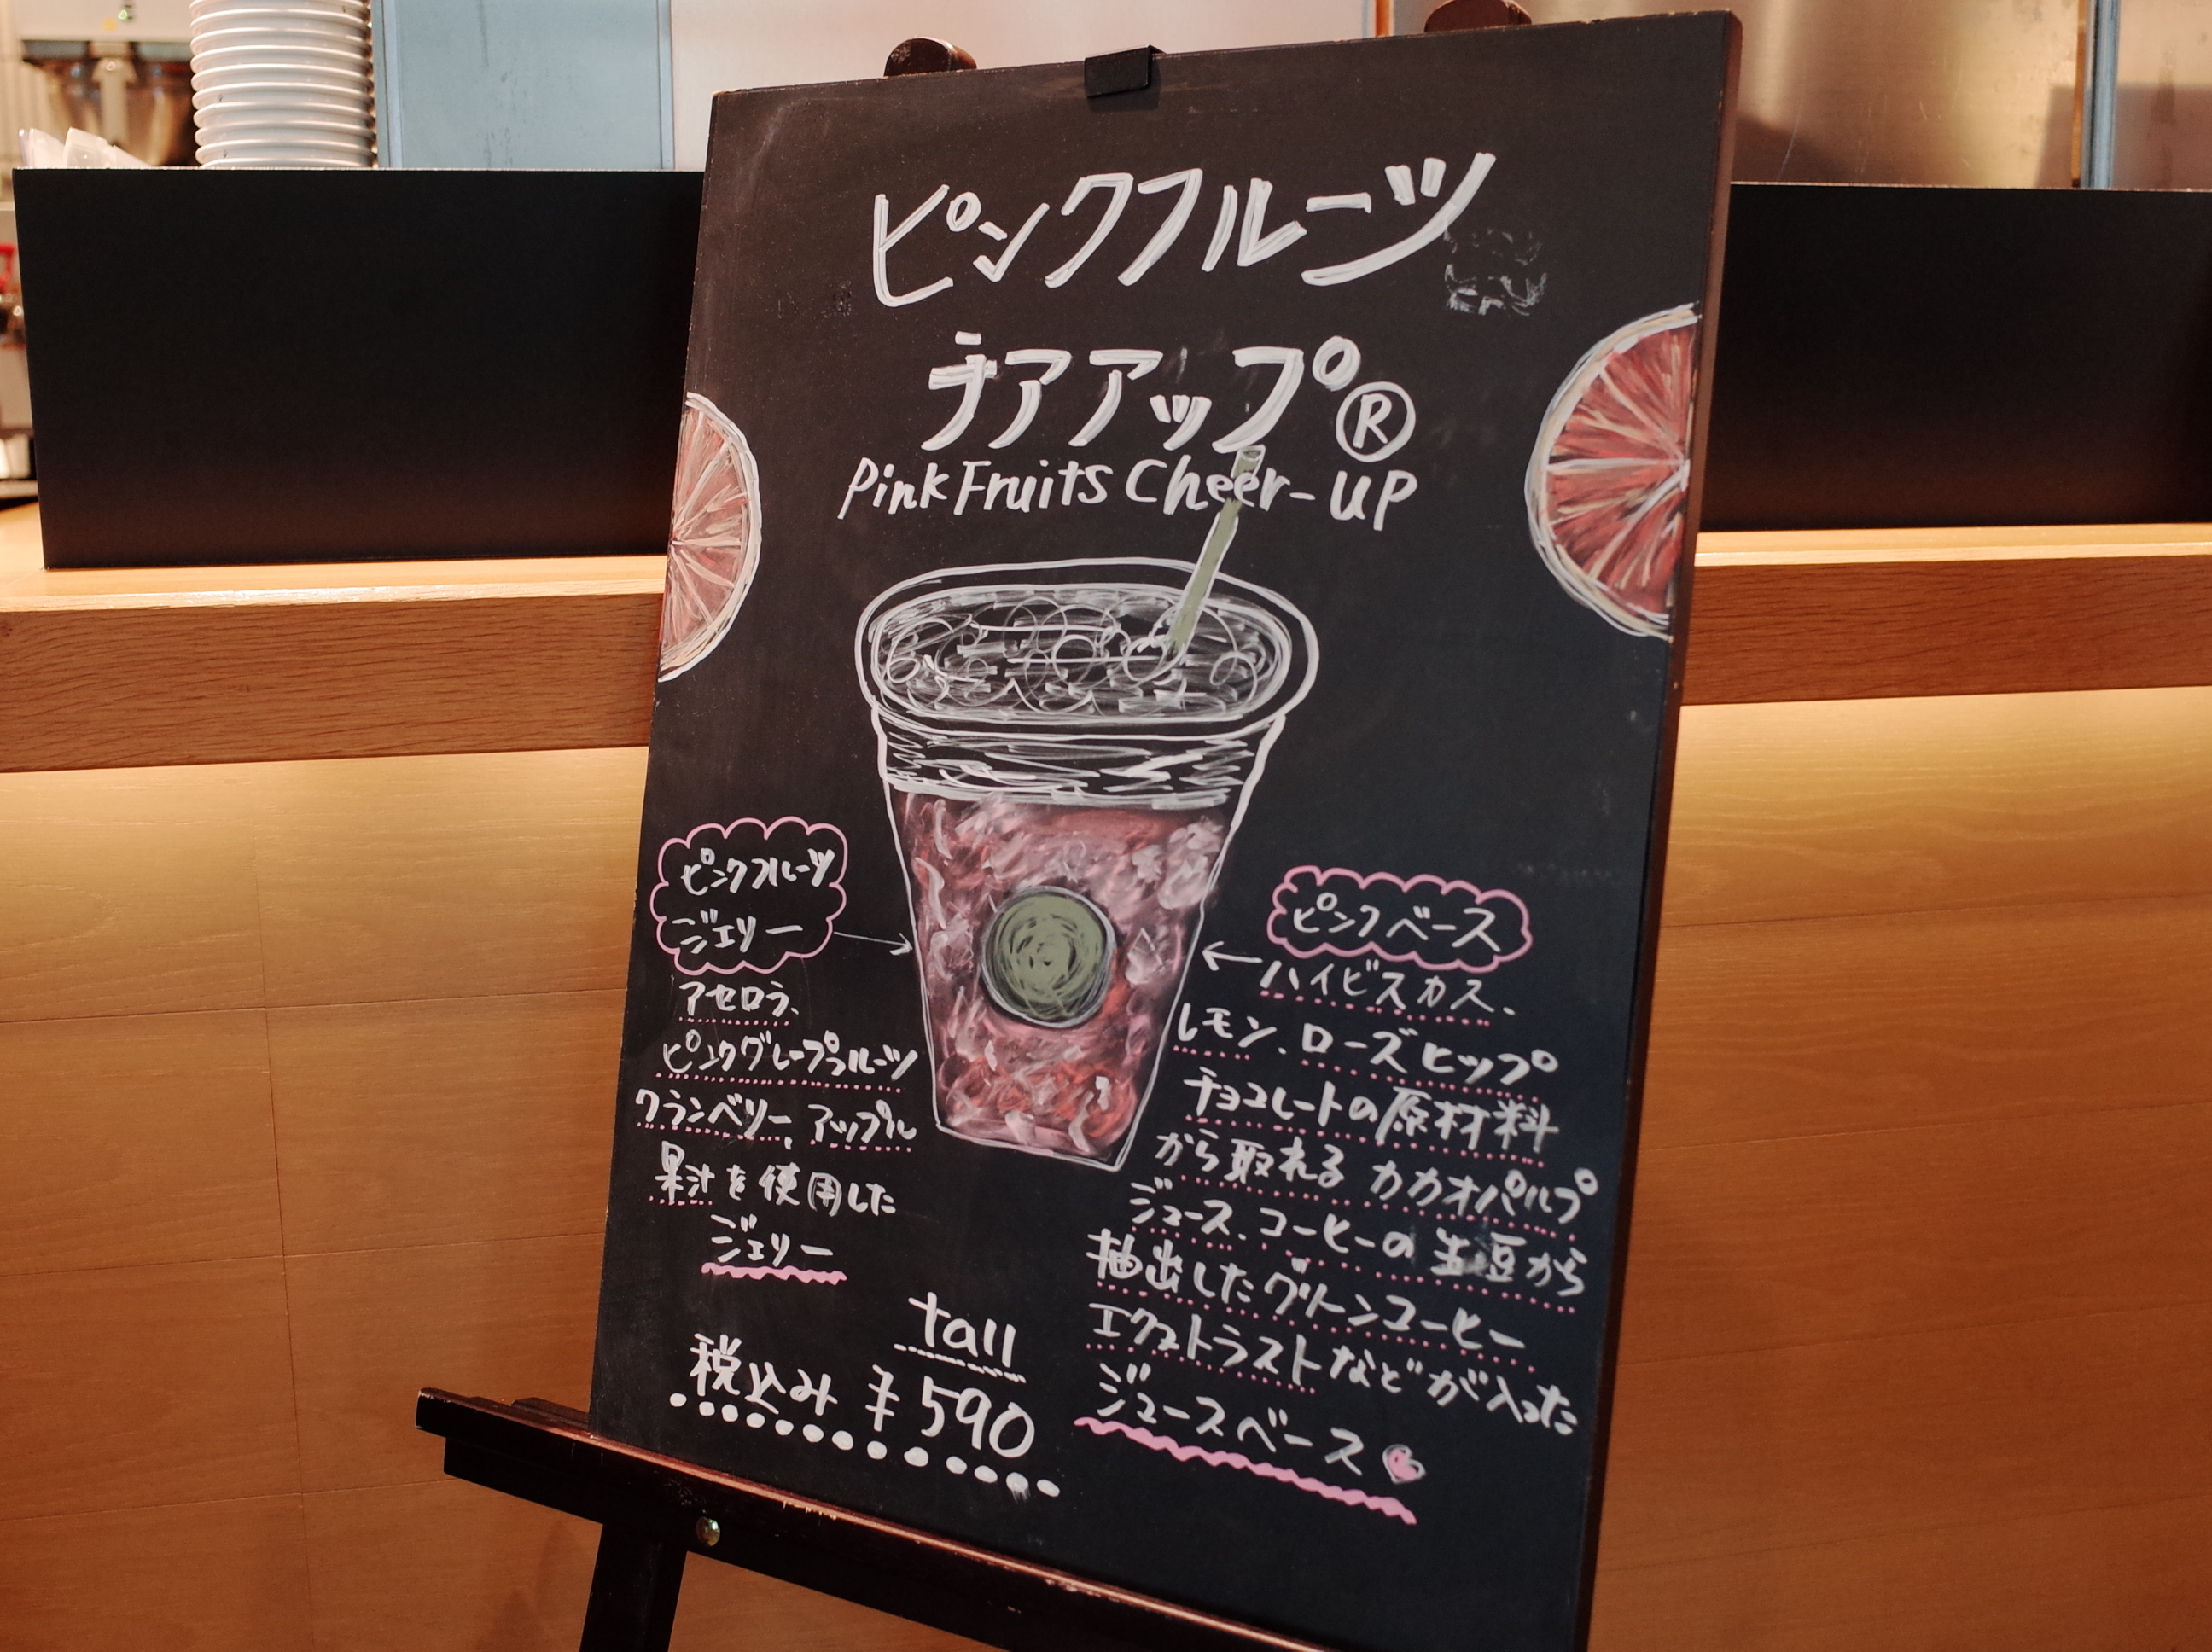 ピンクフルーツ
チアアップ®
Pink Fruits Cheer-UP
ピンクフルーツ
ジェリー
アセロラ、
ピンクグレープフルーツ
クランベリー、アップル
果汁を使用した
ジェリー
ピンクベース
ハイビスカス、
レモン、ローズヒップ
チョコレートの原材料
から取れるカカオパルプ
ジュース、コーヒーの生豆から
抽出したグリーンコーヒー
エクストラストなどが入った
ジュースベース
tall
税込み ¥590